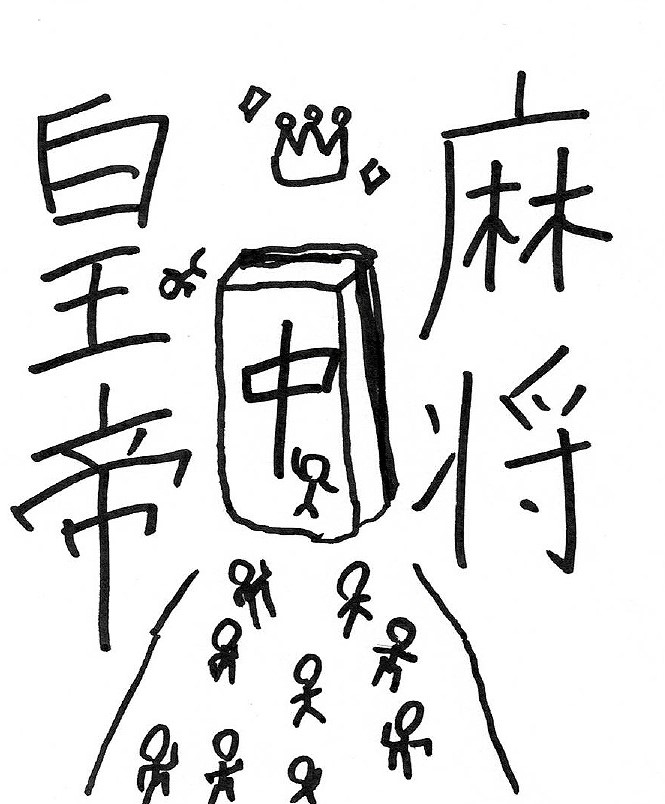 麻将
皇帝
中